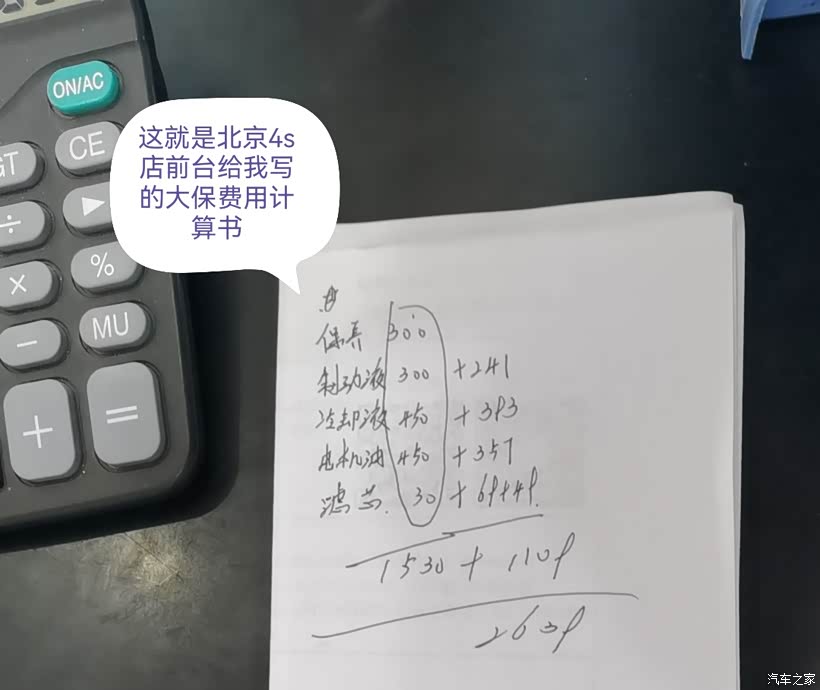 ON/AC
GT
CE
÷
▶
×
%
−
MU
+
=
这就是北京4s
店前台给我写
的大保费用计
算书
保养 300
制动液 300 +241
冷却液 450 +393
电机油 450 +357
滤芯. 30 +69+49.
1530 + 1109
2639
汽车之家